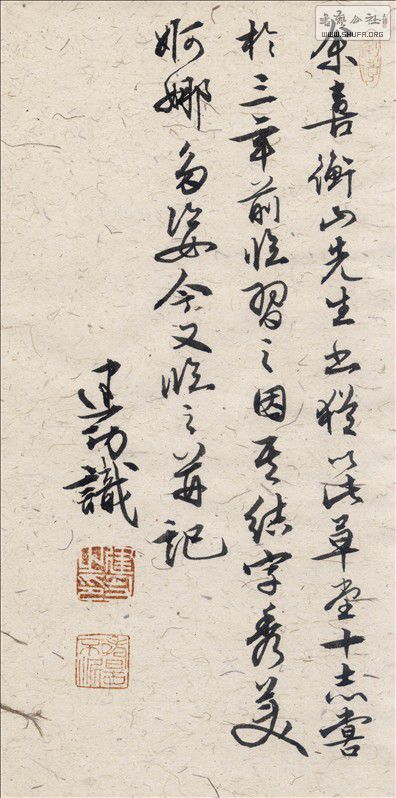 余喜衡山先生书猶以此草堂十志嘗
於三年前临習之因其结字秀美
婀娜多姿今又临之并记
建功識
书艺公社
WWW.SHUFA.ORG